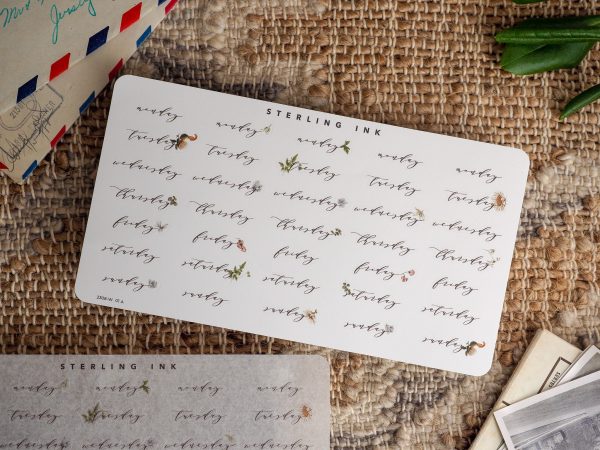 STERLING INK
monday monday monday monday monday
tuesday tuesday tuesday tuesday tuesday
wednesday wednesday wednesday wednesday wednesday
thursday thursday thursday thursday thursday
friday friday friday friday friday
saturday saturday saturday saturday saturday
sunday sunday sunday sunday sunday
STERLING INK
monday monday monday monday
tuesday tuesday tuesday tuesday
wednesday wednesday wednesday wednesday